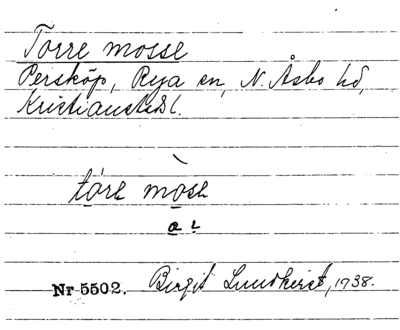 Torre mosse
Persköp, Rya sn, N. Åsbo hd,
Kristianstads l.
tóre mose
a e
Nr 5502. Birgit Lundkvist, 1938.